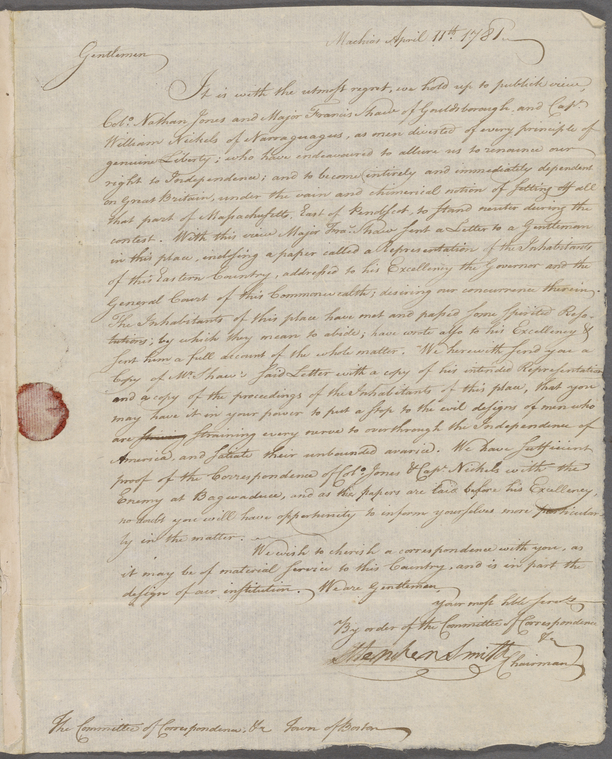 Machias April 11th. 1781.
Gentlemen
It is with the utmost regret, we hold up to publick view,
Colo. Nathan Jones and Major Francis Shaw of Gouldsborough, and Capt.
William Nickels of Narraguagues, as men divested of every principle of
genuine Liberty; who have endeavoured to allure us to renounce our
right to Independence; and to become entirely and immediately dependent
on Great Britain, under the vain and chimerical notion of setting off all
that part of Massachusetts, East of Penobscot, to stand neuter during the
contest. With this view Major Fras. Shaw sent a Letter to a Gentleman
in this place, enclosing a paper called a Representation of the Inhabitants
of this Eastern Country, addressed to his Excellency the Governor and the
General Court of this Commonwealth; desiring our concurrence therein.
The Inhabitants of this place have met and passed some spirited Reso-
lutions; by which they mean to abide; have wrote also to his Excellency &
sent him a full account of the whole matter. We herewith send you a
Copy of Mr. Shaw's said Letter with a copy of his intended Representation
and a copy of the proceedings of the Inhabitants of this place, that you
may have it in your power to put a stop to the evil designs of men who
are straining every nerve to overthrough the Independence of
America and satiate their unbounded avarice. We have sufficient
proof of the Correspondence of Colo. Jones & Capt. Nickels with the
Enemy at Bagwaduce, and as the papers are laid before his Excellency,
no doubt you will have opportunity to inform yourselves more particular
ly in the matter.
We wish to cherish a correspondence with you, as
it may be of material service to this Country, and is in part the
design of our institution. We are Gentlemen,
your most hble Servts
By order of the Committee of Correspondence
&c
Stephen Smith Chairman
The Committee of Correspondence &c Town of Boston